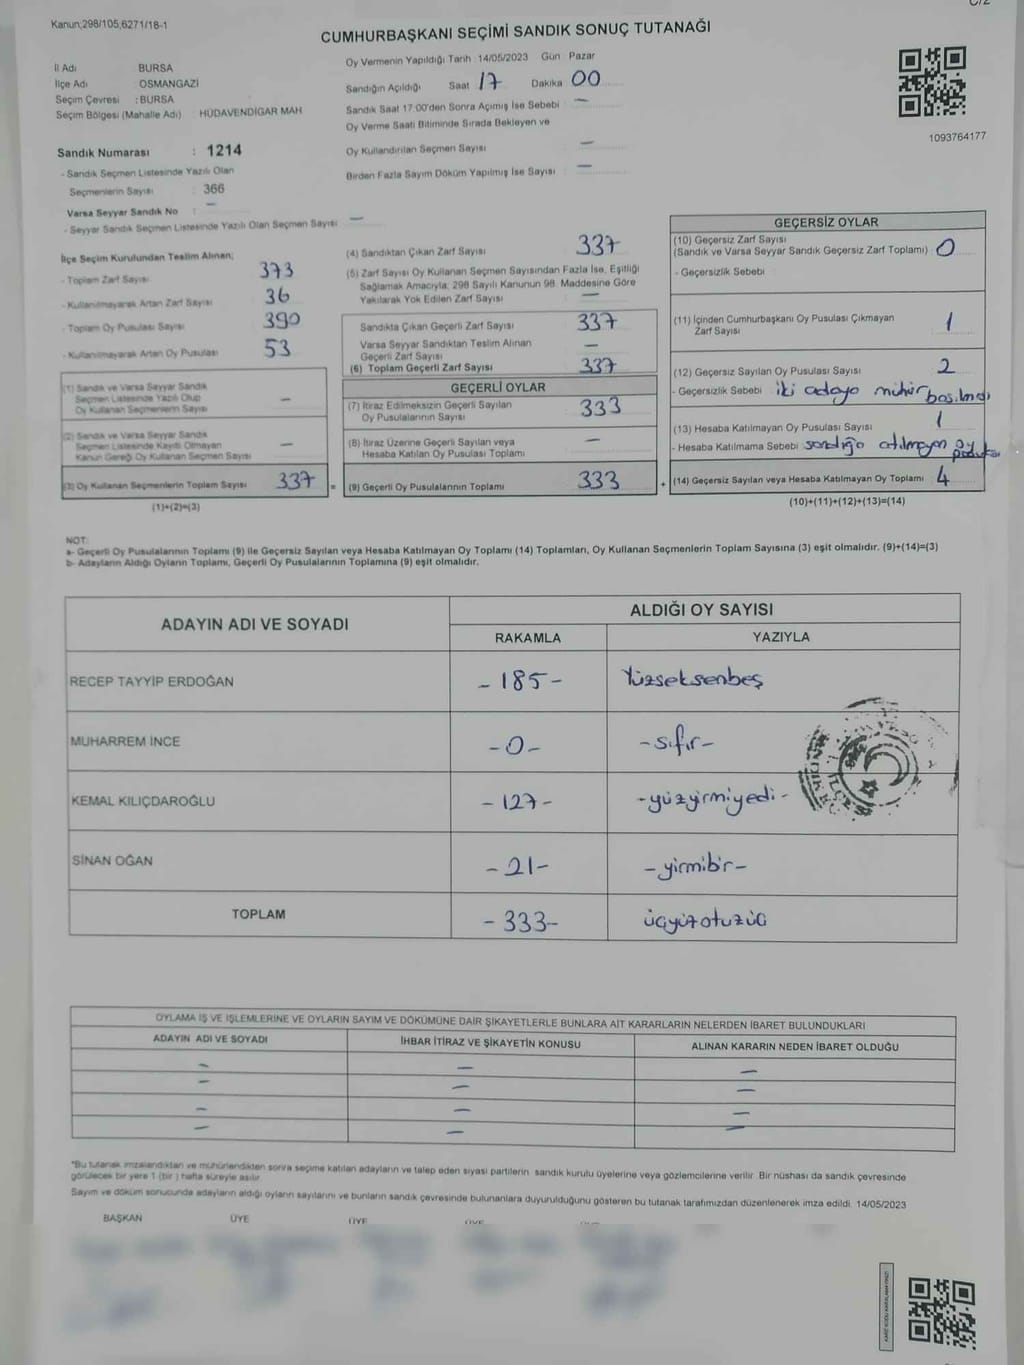 C/2
Kanun;298/105,6271/18-1
CUMHURBAŞKANI SEÇİMİ SANDIK SONUÇ TUTANAĞI
İl Adı BURSA
İlçe Adı OSMANGAZİ
Seçim Çevresi : BURSA
Seçim Bölgesi (Mahalle Adı) HÜDAVENDİGAR MAH
Oy Vermenin Yapıldığı Tarih 14/05/2023 Gün Pazar
Sandığın Açıldığı Saat 17 Dakika 00
Sandık Saat 17:00'den Sonra Açımış İse Sebebi —
Oy Verme Saati Bitiminde Sırada Bekleyen ve
Oy Kullandırılan Seçmen Sayısı —
Birden Fazla Sayım Döküm Yapılmış İse Sayısı —
1093764177
Sandık Numarası : 1214
- Sandık Seçmen Listesinde Yazılı Olan
Seçmenlerin Sayısı 366
Varsa Seyyar Sandık No : —
- Seyyar Sandık Seçmen Listesinde Yazılı Olan Seçmen Sayısı —
İlçe Seçim Kurulundan Teslim Alınan;
- Toplam Zarf Sayısı 373
- Kullanılmayarak Artan Zarf Sayısı 36
- Toplam Oy Pusulası Sayısı 390
- Kullanılmayarak Artan Oy Pusulası 53
(1) Sandık ve Varsa Seyyar Sandık
Seçmen Listesinde Yazılı Olup
Oy Kullanan Seçmenlerin Sayısı —
(2) Sandık ve Varsa Seyyar Sandık
Seçmen Listesinde Kayıtlı Olmayan
Kanun Gereği Oy Kullanan Seçmen Sayısı —
(3) Oy Kullanan Seçmenlerin Toplam Sayısı 337 =
(1)+(2)=(3)
(4) Sandıktan Çıkan Zarf Sayısı 337
(5) Zarf Sayısı Oy Kullanan Seçmen Sayısından Fazla İse, Eşitliği
Sağlamak Amacıyla; 298 Sayılı Kanunun 98. Maddesine Göre
Yakılarak Yok Edilen Zarf Sayısı —
Sandıkta Çıkan Geçerli Zarf Sayısı 337
Varsa Seyyar Sandıktan Teslim Alınan
Geçerli Zarf Sayısı —
(6) Toplam Geçerli Zarf Sayısı 337
GEÇERLİ OYLAR
(7) İtiraz Edilmeksizin Geçerli Sayılan
Oy Pusulalarının Sayısı 333
(8) İtiraz Üzerine Geçerli Sayılan veya
Hesaba Katılan Oy Pusulası Toplamı —
(9) Geçerli Oy Pusulalarının Toplamı 333 +
GEÇERSİZ OYLAR
(10) Geçersiz Zarf Sayısı
(Sandık ve Varsa Seyyar Sandık Geçersiz Zarf Toplamı) 0
- Geçersizlik Sebebi
(11) İçinden Cumhurbaşkanı Oy Pusulası Çıkmayan
Zarf Sayısı 1
(12) Geçersiz Sayılan Oy Pusulası Sayısı 2
- Geçersizlik Sebebi iki adaya mühür basılmdı
(13) Hesaba Katılmayan Oy Pusulası Sayısı 1
- Hesaba Katılmama Sebebi sandığa atılmayan oy
(14) Geçersiz Sayılan veya Hesaba Katılmayan Oy Toplamı 4
(10)+(11)+(12)+(13)=(14)
NOT:
a- Geçerli Oy Pusulalarının Toplamı (9) ile Geçersiz Sayılan veya Hesaba Katılmayan Oy Toplamı (14) Toplamları, Oy Kullanan Seçmenlerin Toplam Sayısına (3) eşit olmalıdır. (9)+(14)=(3)
b- Adayların Aldığı Oyların Toplamı, Geçerli Oy Pusulalarının Toplamına (9) eşit olmalıdır.
ADAYIN ADI VE SOYADI ALDIĞI OY SAYISI
RAKAMLA YAZIYLA
RECEP TAYYİP ERDOĞAN -185- Yüzseksenbeş
MUHARREM İNCE -0- -sıfır-
KEMAL KILIÇDAROĞLU -127- -yüzyirmiyedi-
SİNAN OĞAN -21- -yirmibir-
TOPLAM -333- üçyüzotuzüç
OYLAMA İŞ VE İŞLEMLERİNE VE OYLARIN SAYIM VE DÖKÜMÜNE DAİR ŞİKAYETLERLE BUNLARA AİT KARARLARIN NELERDEN İBARET BULUNDUKLARI
ADAYIN ADI VE SOYADI İHBAR İTİRAZ VE ŞİKAYETİN KONUSU ALINAN KARARIN NEDEN İBARET OLDUĞU
— — —
— — —
— — —
— — —
*Bu tutanak imzalandıktan ve mühürlendikten sonra seçime katılan adayların ve talep eden siyasi partilerin sandık kurulu üyelerine veya gözlemcilerine verilir. Bir nüshası da sandık çevresinde
görülecek bir yere 1 (bir ) hafta süreyle asılır.
Sayım ve döküm sonucunda adayların aldığı oyların sayılarını ve bunların sandık çevresinde bulunanlara duyurulduğunu gösteren bu tutanak tarafımızdan düzenlenerek imza edildi. 14/05/2023
BAŞKAN ÜYE ÜYE ÜYE